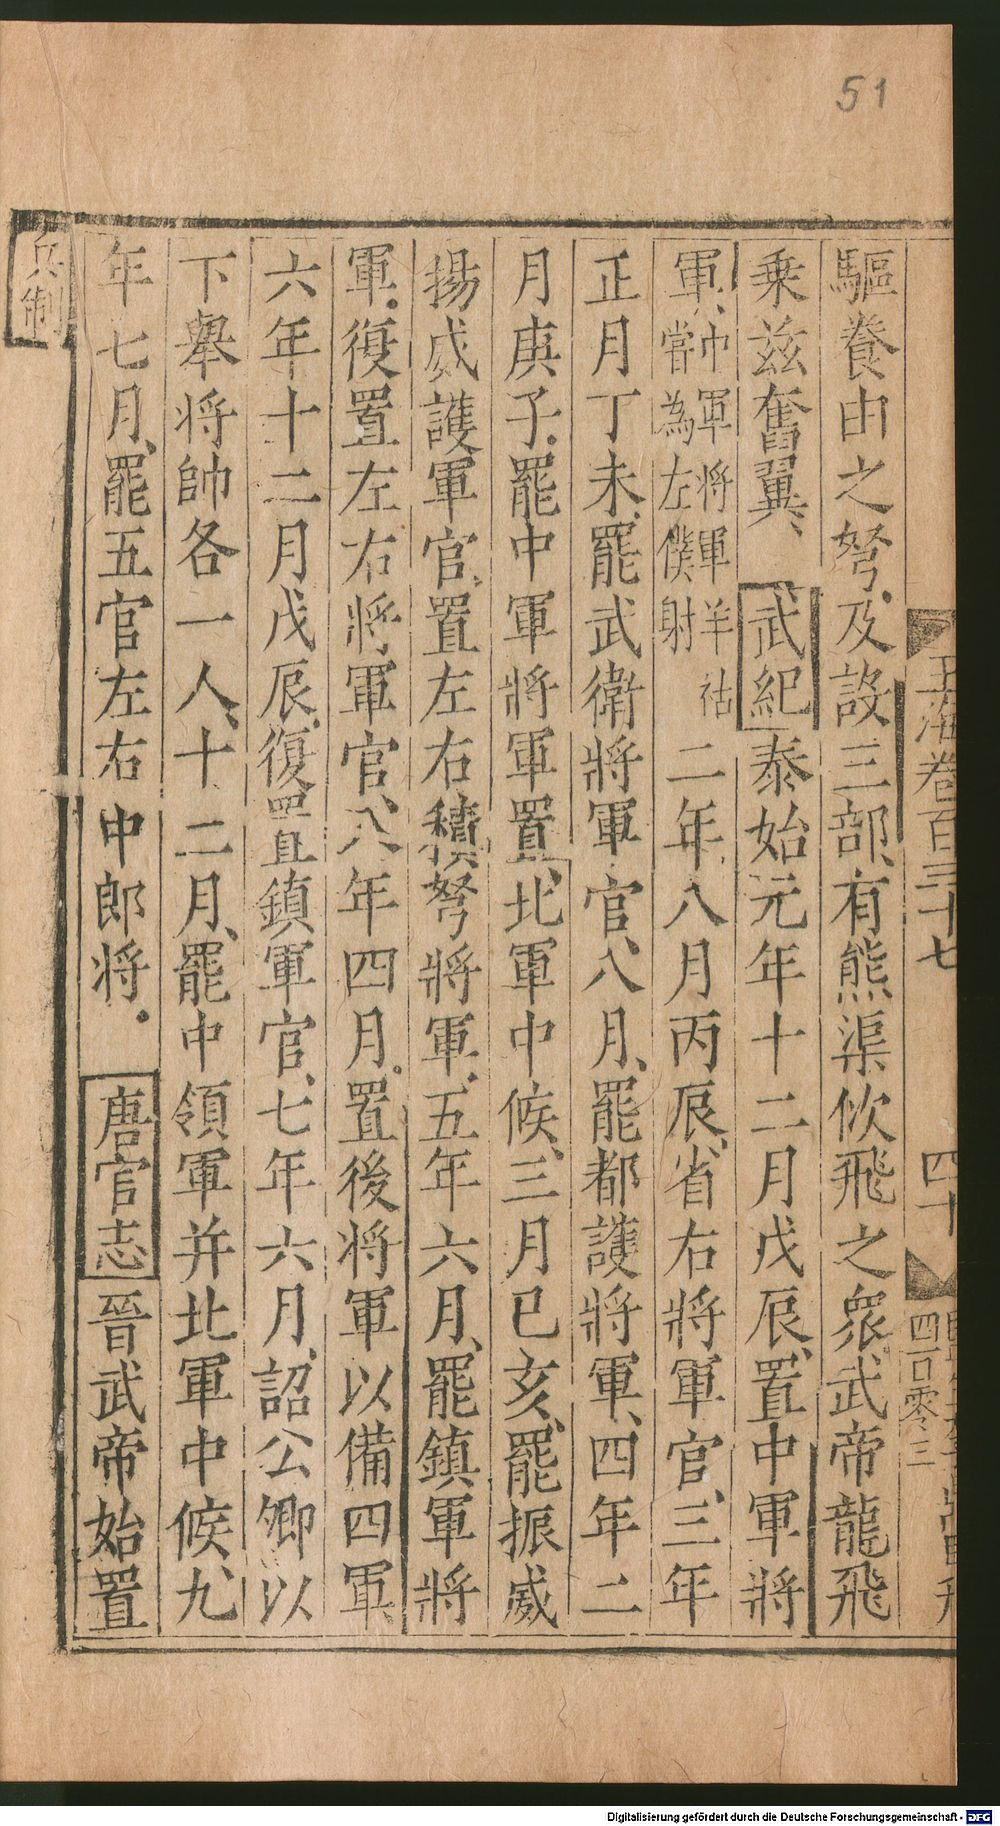 51
玉海卷百三十七
四十
四百零三
驅養由之弩、及設三部、有熊渠佽飛之衆、武帝龍飛
乗兹奮翼、武紀泰始元年十二月戊辰、置中軍將
軍、中軍將軍羊祜
嘗為左僕射
二年八月丙辰、省右將軍官、三年
正月丁未、罷武衛將軍官、八月、罷都護將軍、四年二
月庚子、罷中軍將軍置、北軍中候、三月已亥、罷振威
揚威護軍官、置左右積弩將軍、五年六月、罷鎮軍將
軍、復置左右將軍官、八年四月、置後将軍以備四軍、
六年十二月戊辰、復置鎮軍官、七年六月、詔公卿以
下舉将帥各一人、十二月、罷中領軍并北軍中候、九
年七月、罷五官左右中郎将。唐官志晉武帝始置
兵制
Digitalisierung gefördert durch die Deutsche Forschungsgemeinschaft - DFG